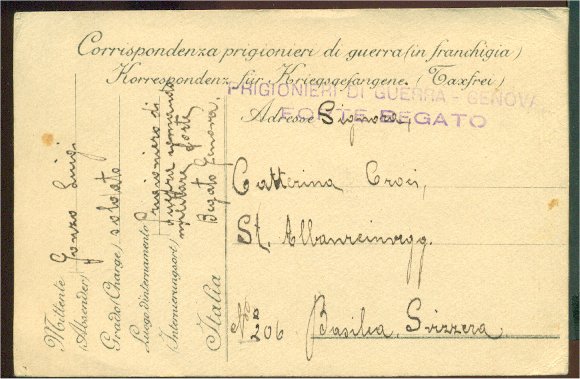 Corrispondenza prigionieri di guerra (in franchigia)
Korrespondenz für Kriegsgefangene. (Taxfrei)
PRIGIONIERI DI GUERRA - GENOVA
FORTE BEGATO
Adresse Signora,
Catterina Croci,
St. Albanreinvegg.
No 206. Basilea, Svizzera
Mittente (Absender) Luigi
Grado (Charge) soldato
Luogo d'internamento (Internierungsort) Prigioniero di
guerra comando
militare forte
Begato Genova,
Italia